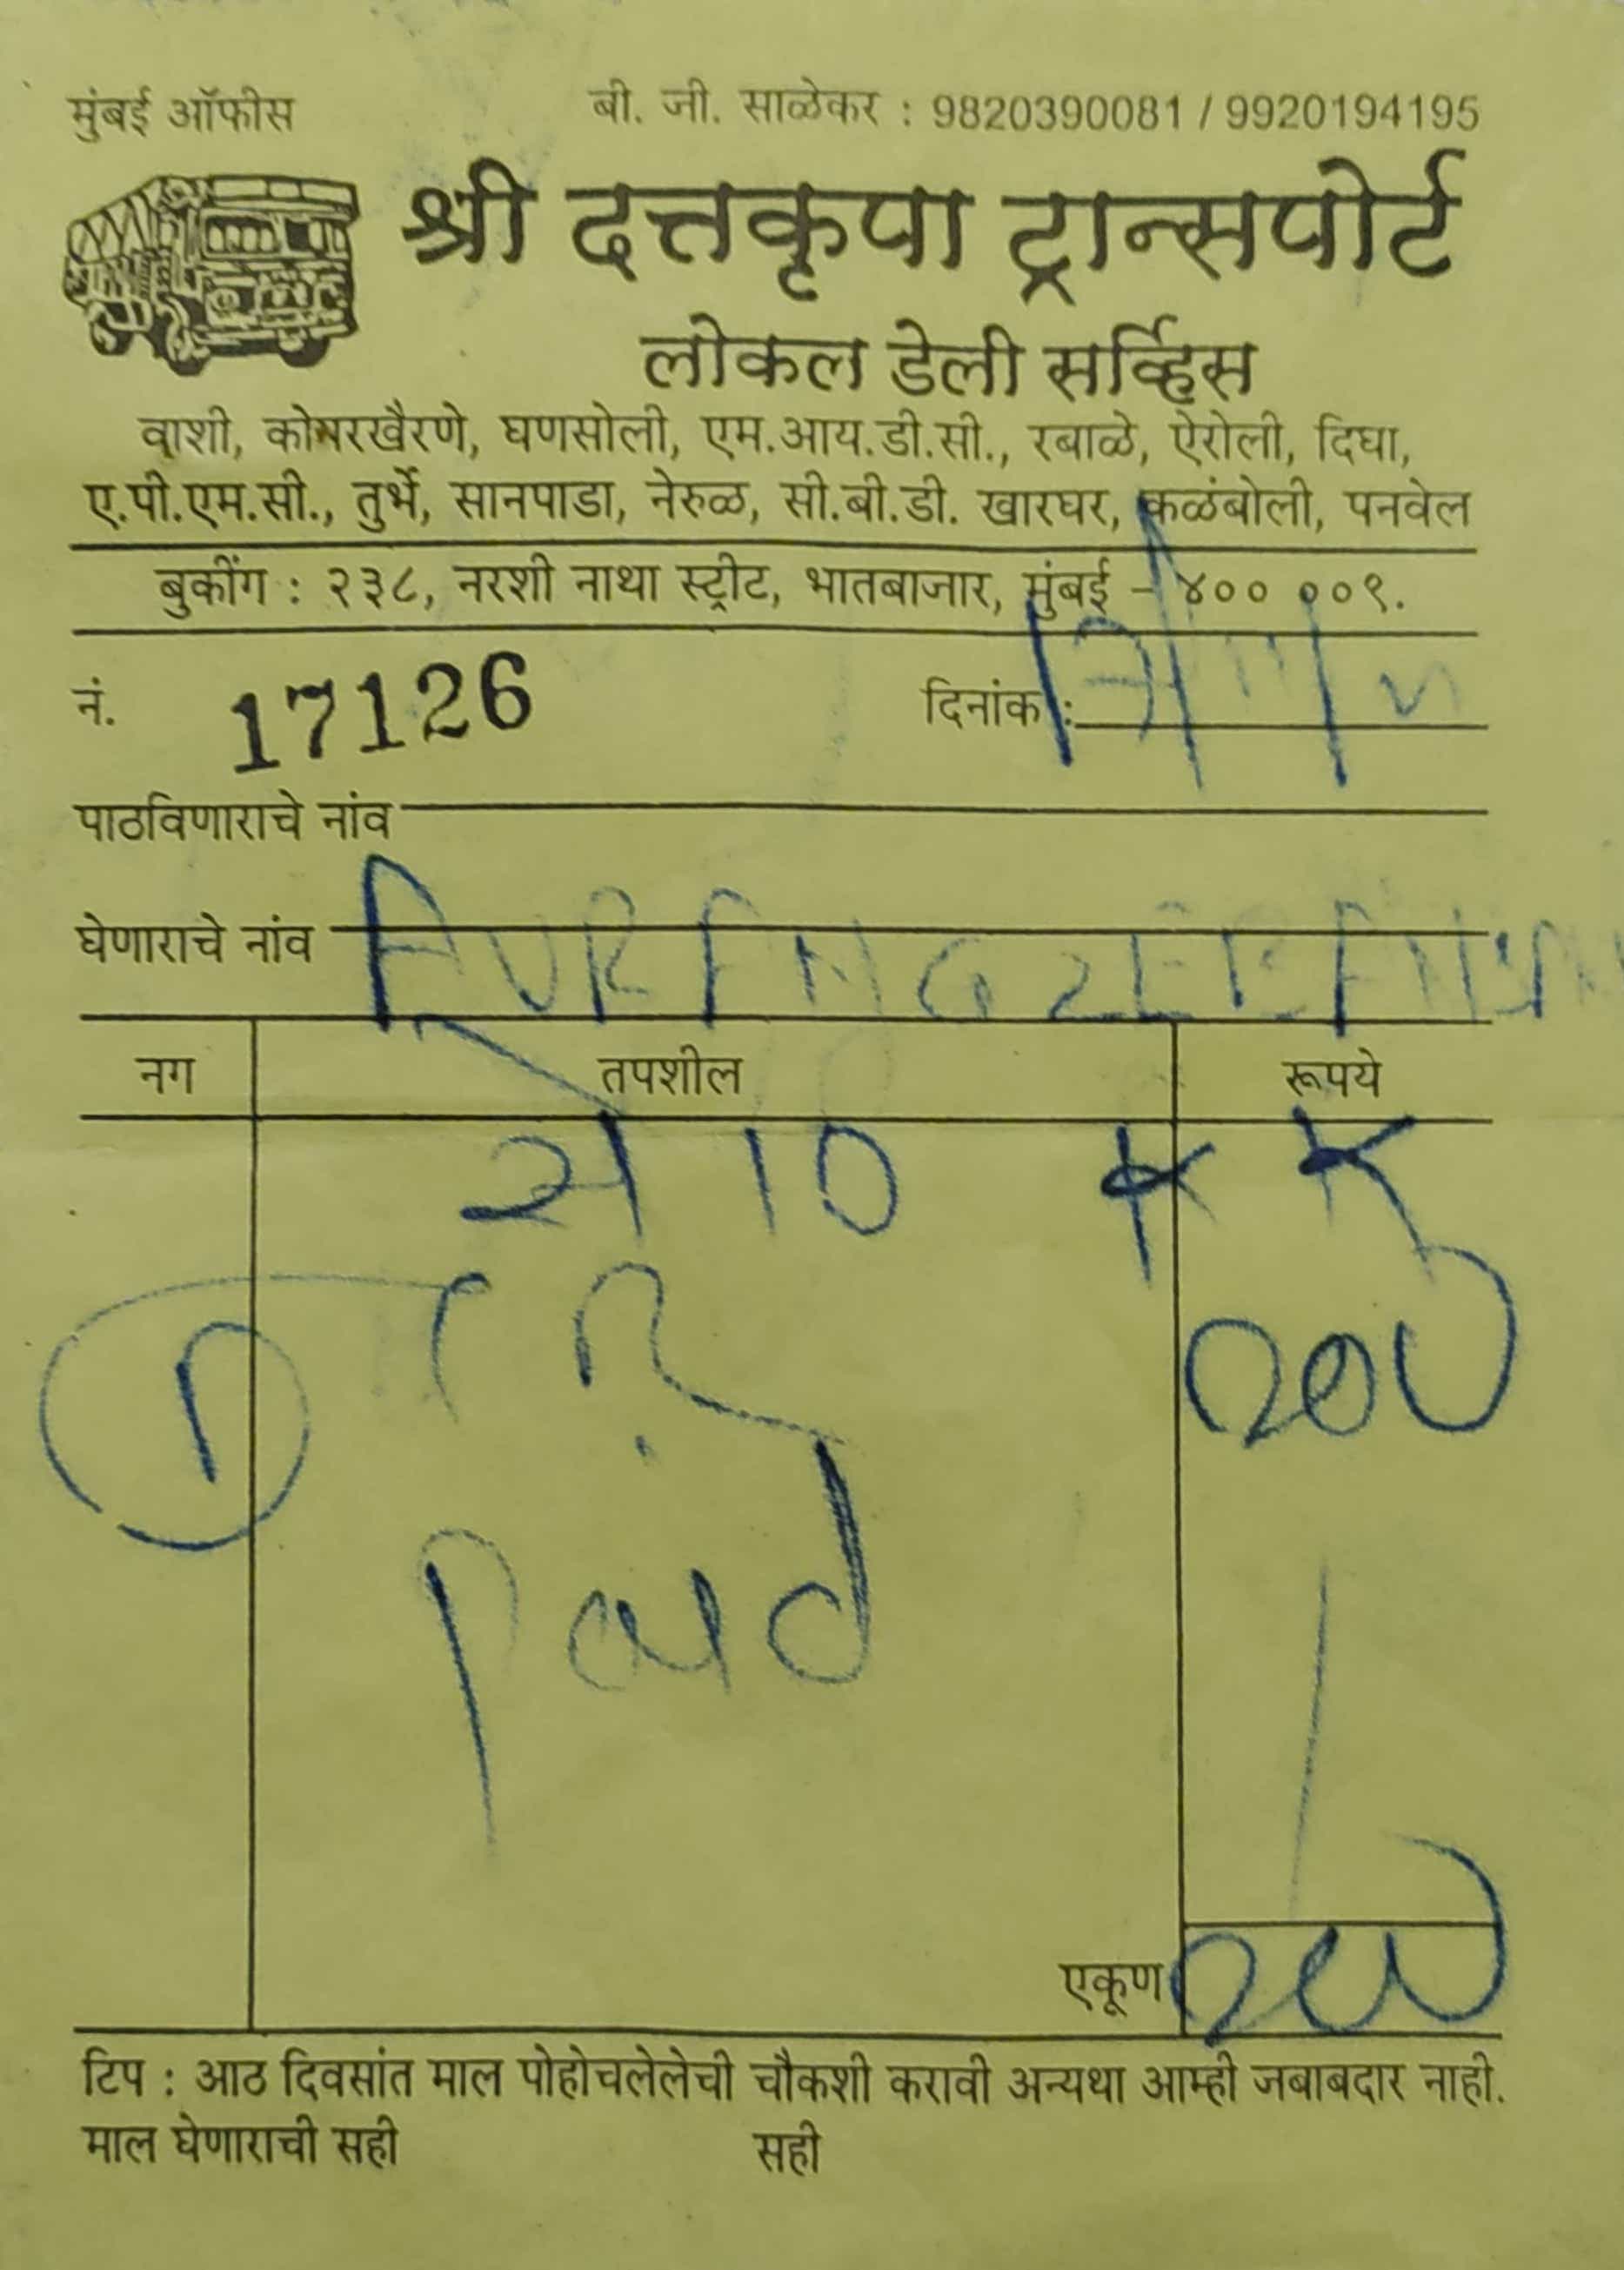 मुंबई ऑफीस बी. जी. साळेकर : 9820390081 / 9920194195
श्री दत्तकृपा ट्रान्सपोर्ट
लोकल डेली सर्व्हिस
वाशी, कोपरखैरणे, घणसोली, एम.आय.डी.सी., रबाळे, ऐरोली, दिघा,
ए.पी.एम.सी., तुर्भे, सानपाडा, नेरुळ, सी.बी.डी. खारघर, कळंबोली, पनवेल
बुकींग : २३८, नरशी नाथा स्ट्रीट, भातबाजार, मुंबई - ४०० ००९.
नं. 17126 दिनांक :
पाठविणाराचे नांव
घेणाराचे नांव
नग तपशील रूपये
200
Paid
एकूण 200
टिप : आठ दिवसांत माल पोहोचलेलेची चौकशी करावी अन्यथा आम्ही जबाबदार नाही.
माल घेणाराची सही सही